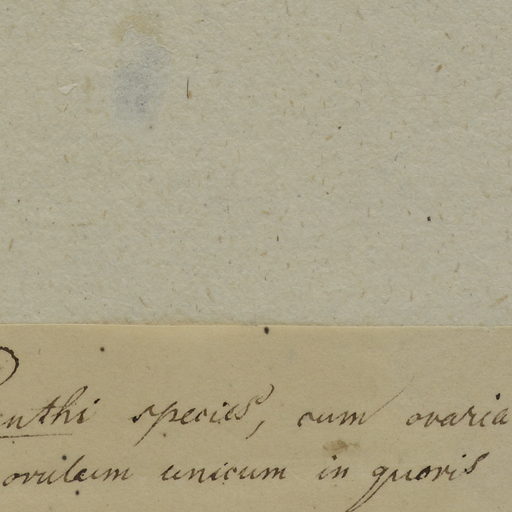 enthi species, cum ovaria
ovulum unicum in quovis